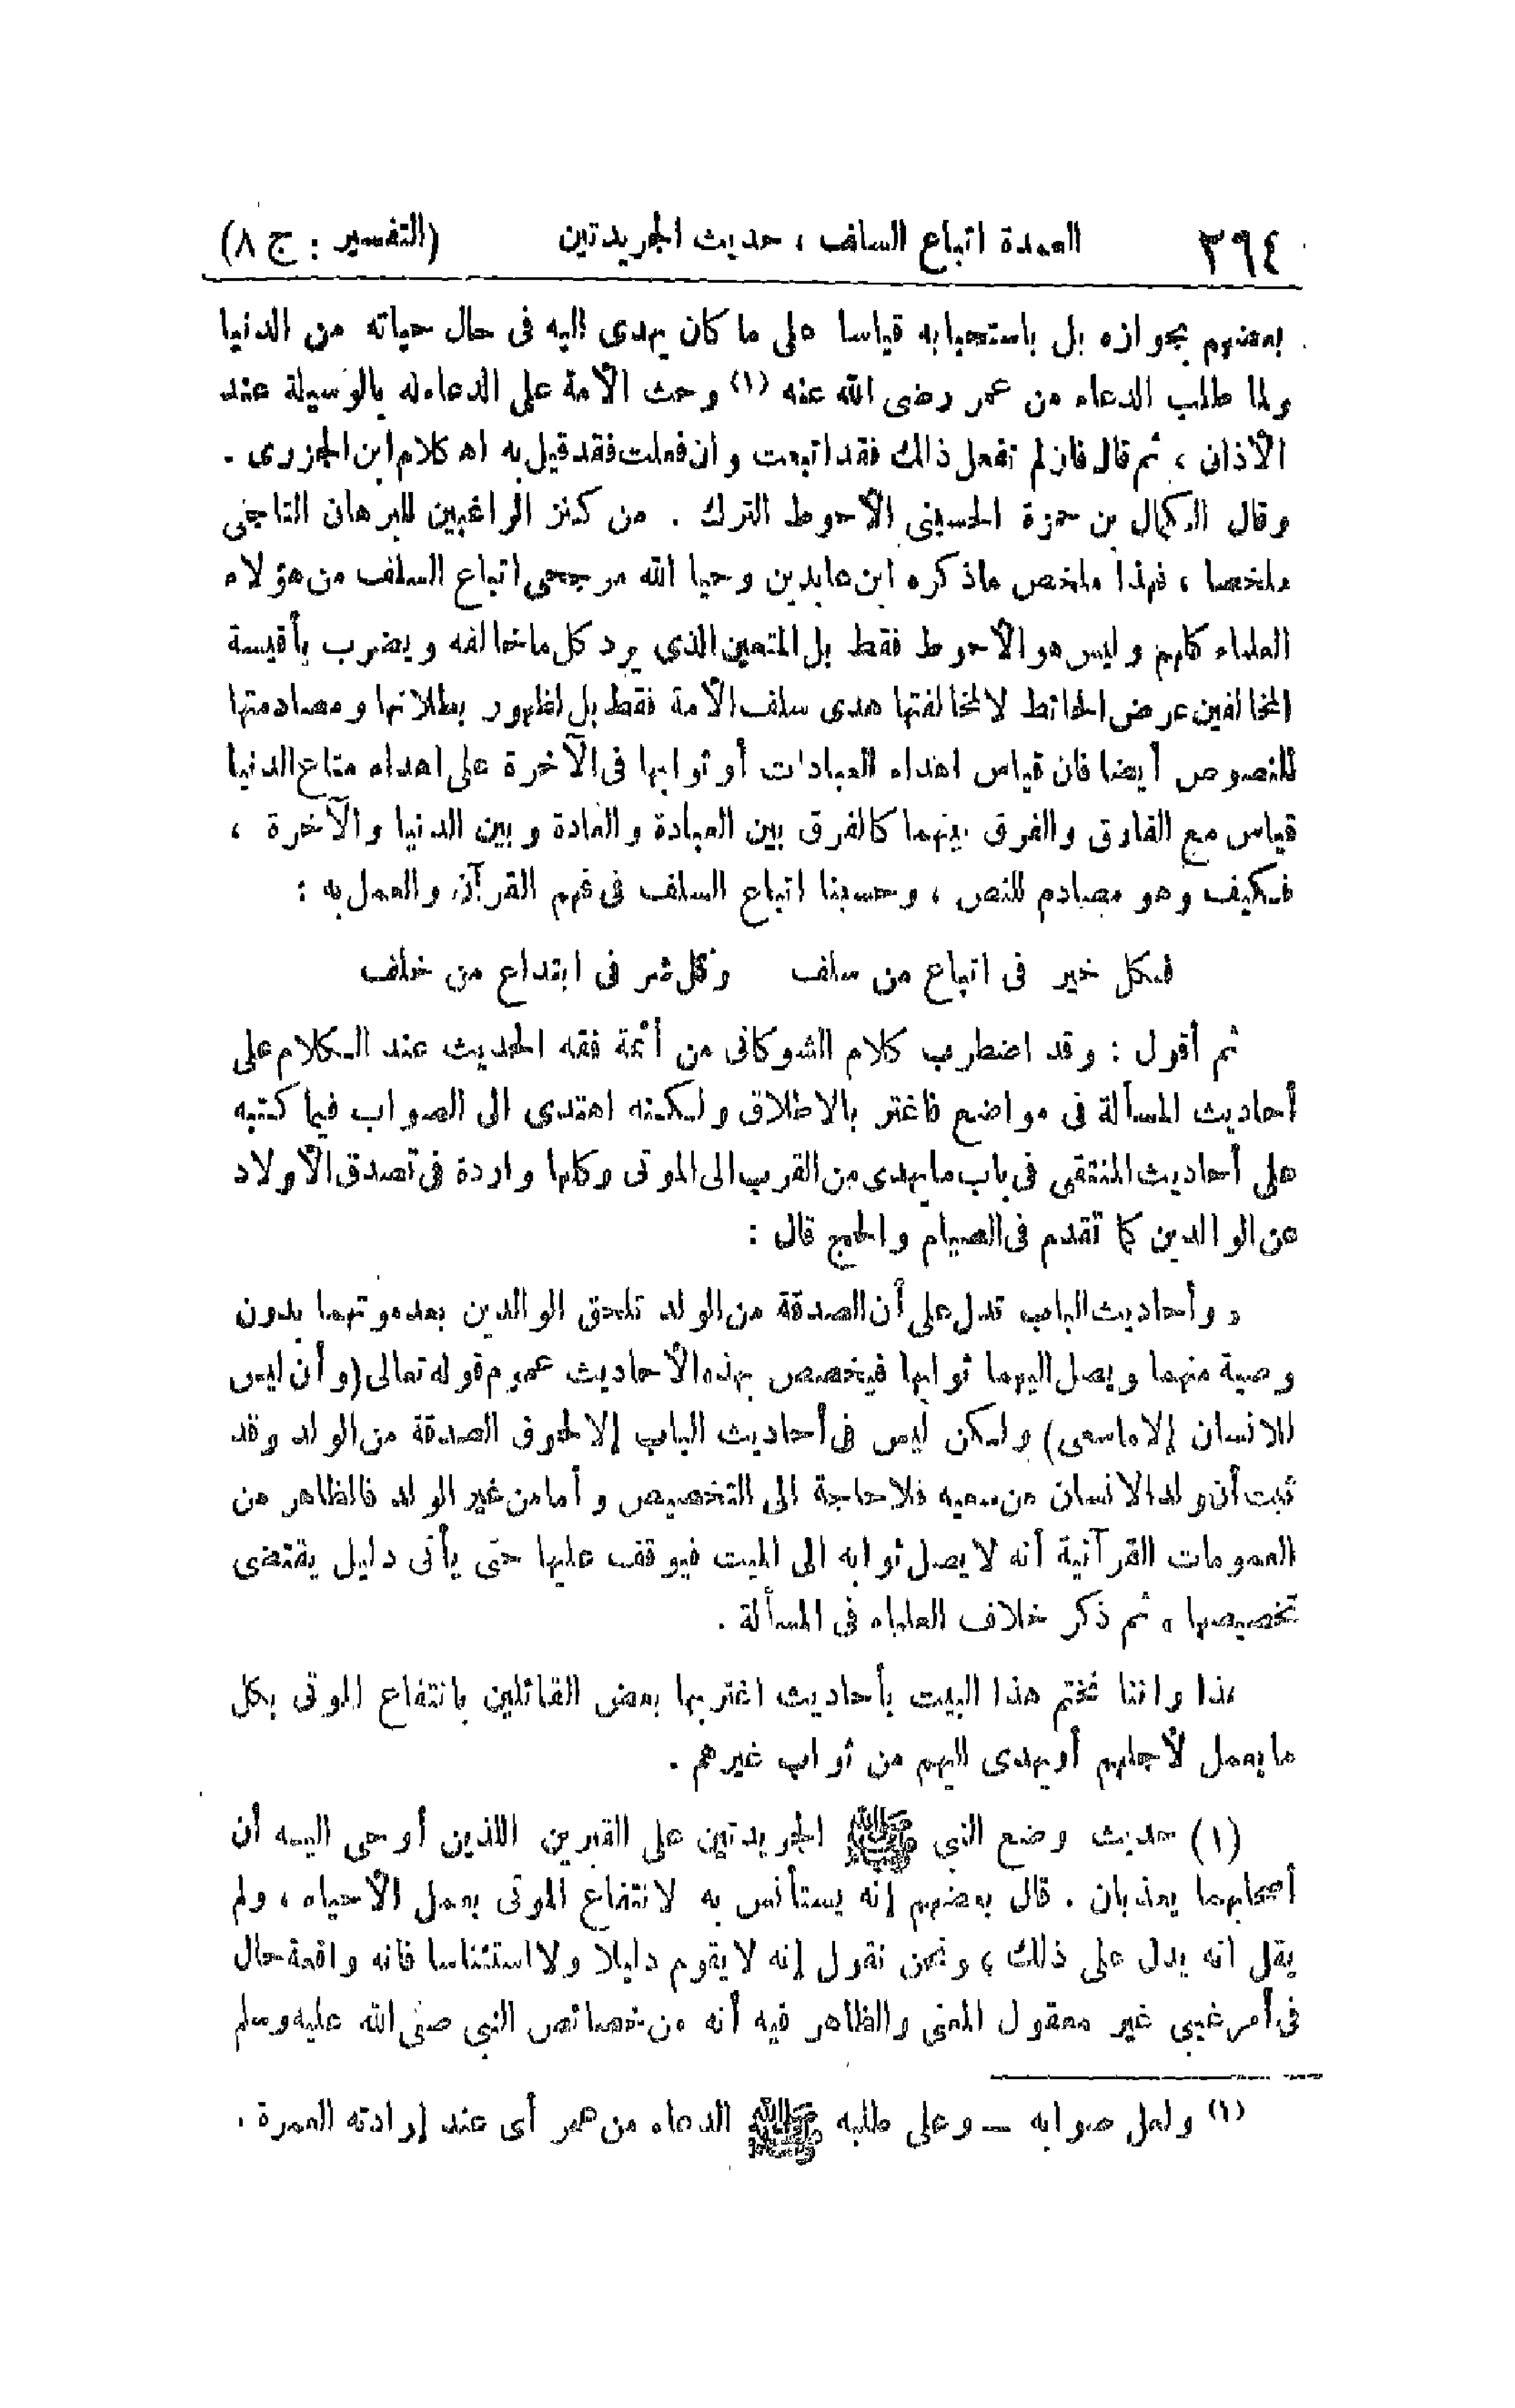 ٣٩٤ العمدة اتباع السلف ، حديث الجريدتين (التفسير : ج ٨)
بعضهم بجوازه بل باستحبابه قياسا على ما كان يهدى اليه فى حال حياته من الدنيا
ولما طلب الدعاء من عمر رضى الله عنه (١) وحث الأمة على الدعاء له بالوسيلة عند
الأذان ، ثم قال فان لم تفعل ذلك فقد اتبعت وان فعلت فقد قيل به اه كلام ابن الجزرى .
وقال الكمال بن حمزة الحسينى الأحوط الترك . من كنز الراغبين للبرهان التاجى
ملخصا ، فهذا ملخص ماذكره ابن عابدين وحيا الله مرجحى اتباع السلف من هؤلاء
العلماء كلهم وليس هو الأحوط فقط بل المتعين الذى يرد كل ماخالفه ويضرب بأقيسة
المخالفين عرض الحائط لا لمخالفتها هدى سلف الأمة فقط بل لظهور بطلانها ومصادمتها
للنصوص أيضا فان قياس اهداء العبادات أو ثوابها فى الآخرة على اهداء متاع الدنيا
قياس مع الفارق والفرق بينهما كالفرق بين العبادة والعادة وبين الدنيا والآخرة ،
فكيف وهو مصادم للنص ، وحسبنا اتباع السلف فى فهم القرآن والعمل به :
فكل خير فى اتباع من سلف وكل شر فى ابتداع من خلف
ثم أقول : وقد اضطرب كلام الشوكانى من أئمة فقه الحديث عند الكلام على
أحاديث المسألة فى مواضع فاغتر بالاطلاق ولكنه اهتدى الى الصواب فيما كتبه
على أحاديث المنتقى فى باب ما يهدى من القرب الى الموتى وكلها واردة فى تصدق الأولاد
عن الوالدين كما تقدم فى الصيام والحج قال :
« وأحاديث الباب تدل على أن الصدقة من الولد تلحق الوالدين بعد موتهما بدون
وصية منهما ويصل اليهما ثوابها فيخصص بهذه الأحاديث عموم قوله تعالى (وأن ليس
للانسان إلا ما سعى) ولكن ليس فى أحاديث الباب إلا لحوق الصدقة من الولد وقد
ثبت أن ولد الانسان من سعيه فلا حاجة الى التخصيص وأما من غير الولد فالظاهر من
العمومات القرآنية أنه لا يصل ثوابه الى الميت فيوقف عليها حتى يأتى دليل يقتضى
تخصيصها » ثم ذكر خلاف العلماء فى المسألة .
هذا واننا نختم هذا البيت بأحاديث اغتر بها بعض القائلين بانتفاع الموتى بكل
ما يعمل لأجلهم أو يهدى اليهم من ثواب غيرهم .
(١) حديث وضع النبى ﷺ الجريدتين على القبرين اللذين أوحى اليه أن
أصحابهما يعذبان . قال بعضهم إنه يستأنس به لانتفاع الموتى بعمل الأحياء ، ولم
يقل انه يدل على ذلك ، ونحن نقول إنه لا يقوم دليلا ولا استئناسا فانه واقعة حال
فى أمر غيبى غير معقول المعنى والظاهر فيه أنه من خصائص النبي صلى الله عليه وسلم
(١) ولعل صوابه – وعلى طلبه ﷺ الدعاء من عمر أى عند إرادته العمرة .